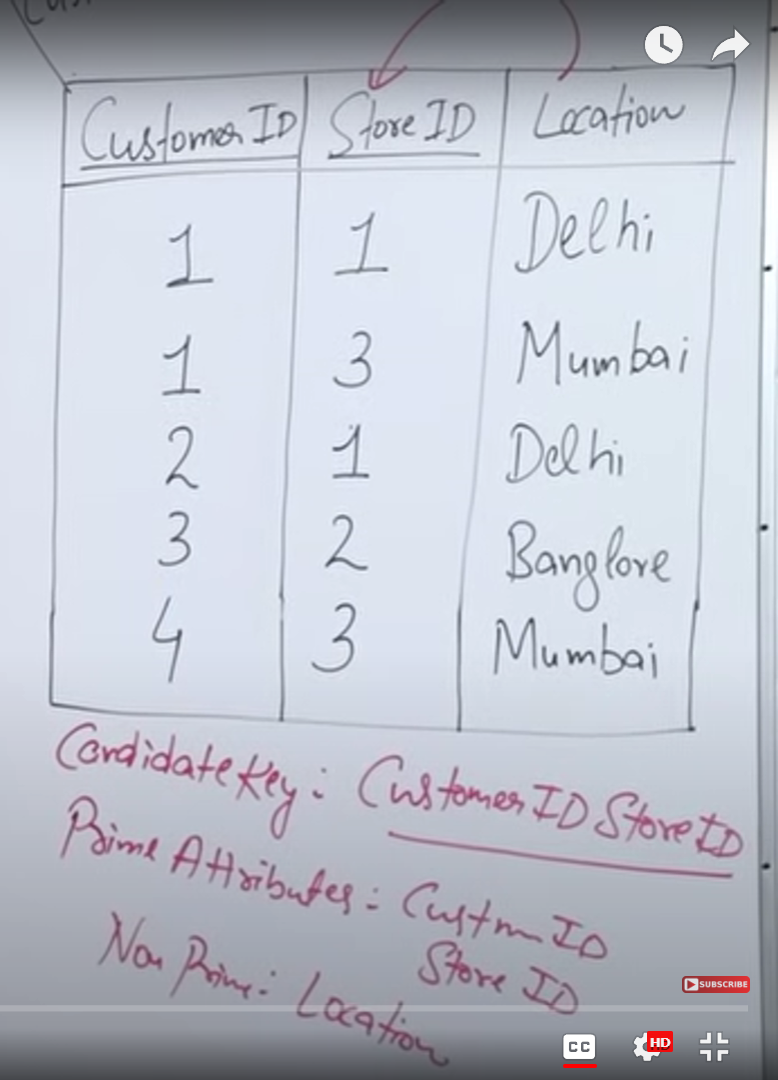 Customer ID Store ID Location
1 1 Delhi
1 3 Mumbai
2 1 Delhi
3 2 Banglore
4 3 Mumbai
Candidate Key: Customer ID Store ID
Prime Attributes: Custm ID
Store ID
Non Prime: Location
SUBSCRIBE
CC HD